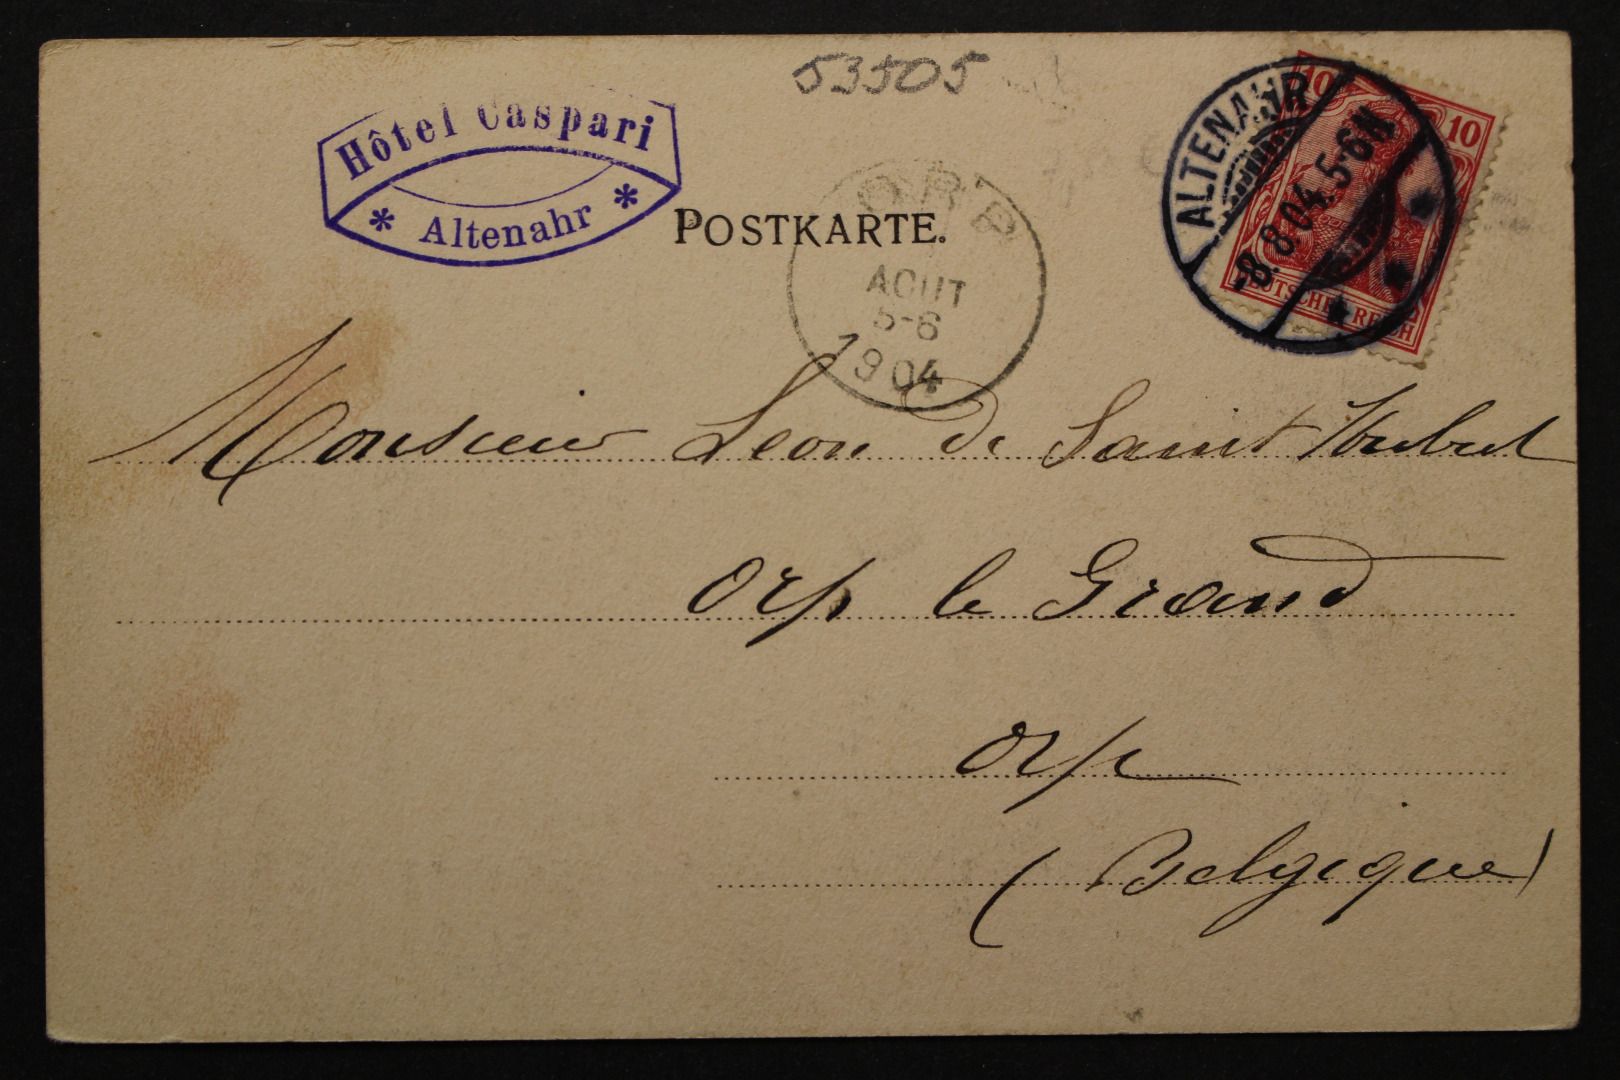 53505
Hôtel Caspari
* Altenahr *
POSTKARTE.
ORP
AOUT
5-6
1904
ALTENAHR
-8.8.04.5-6N
10 10
DEUTSCHES REICH
Monsieur Leon de Saint Hubert
Orp le Grand
Orp
(Belgique)